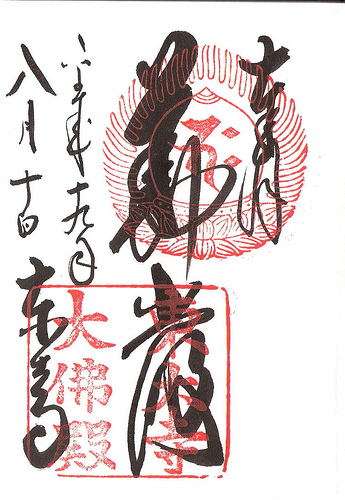 奉拝
華厳
平成十九年
八月十日
東大寺
東大寺
大佛殿